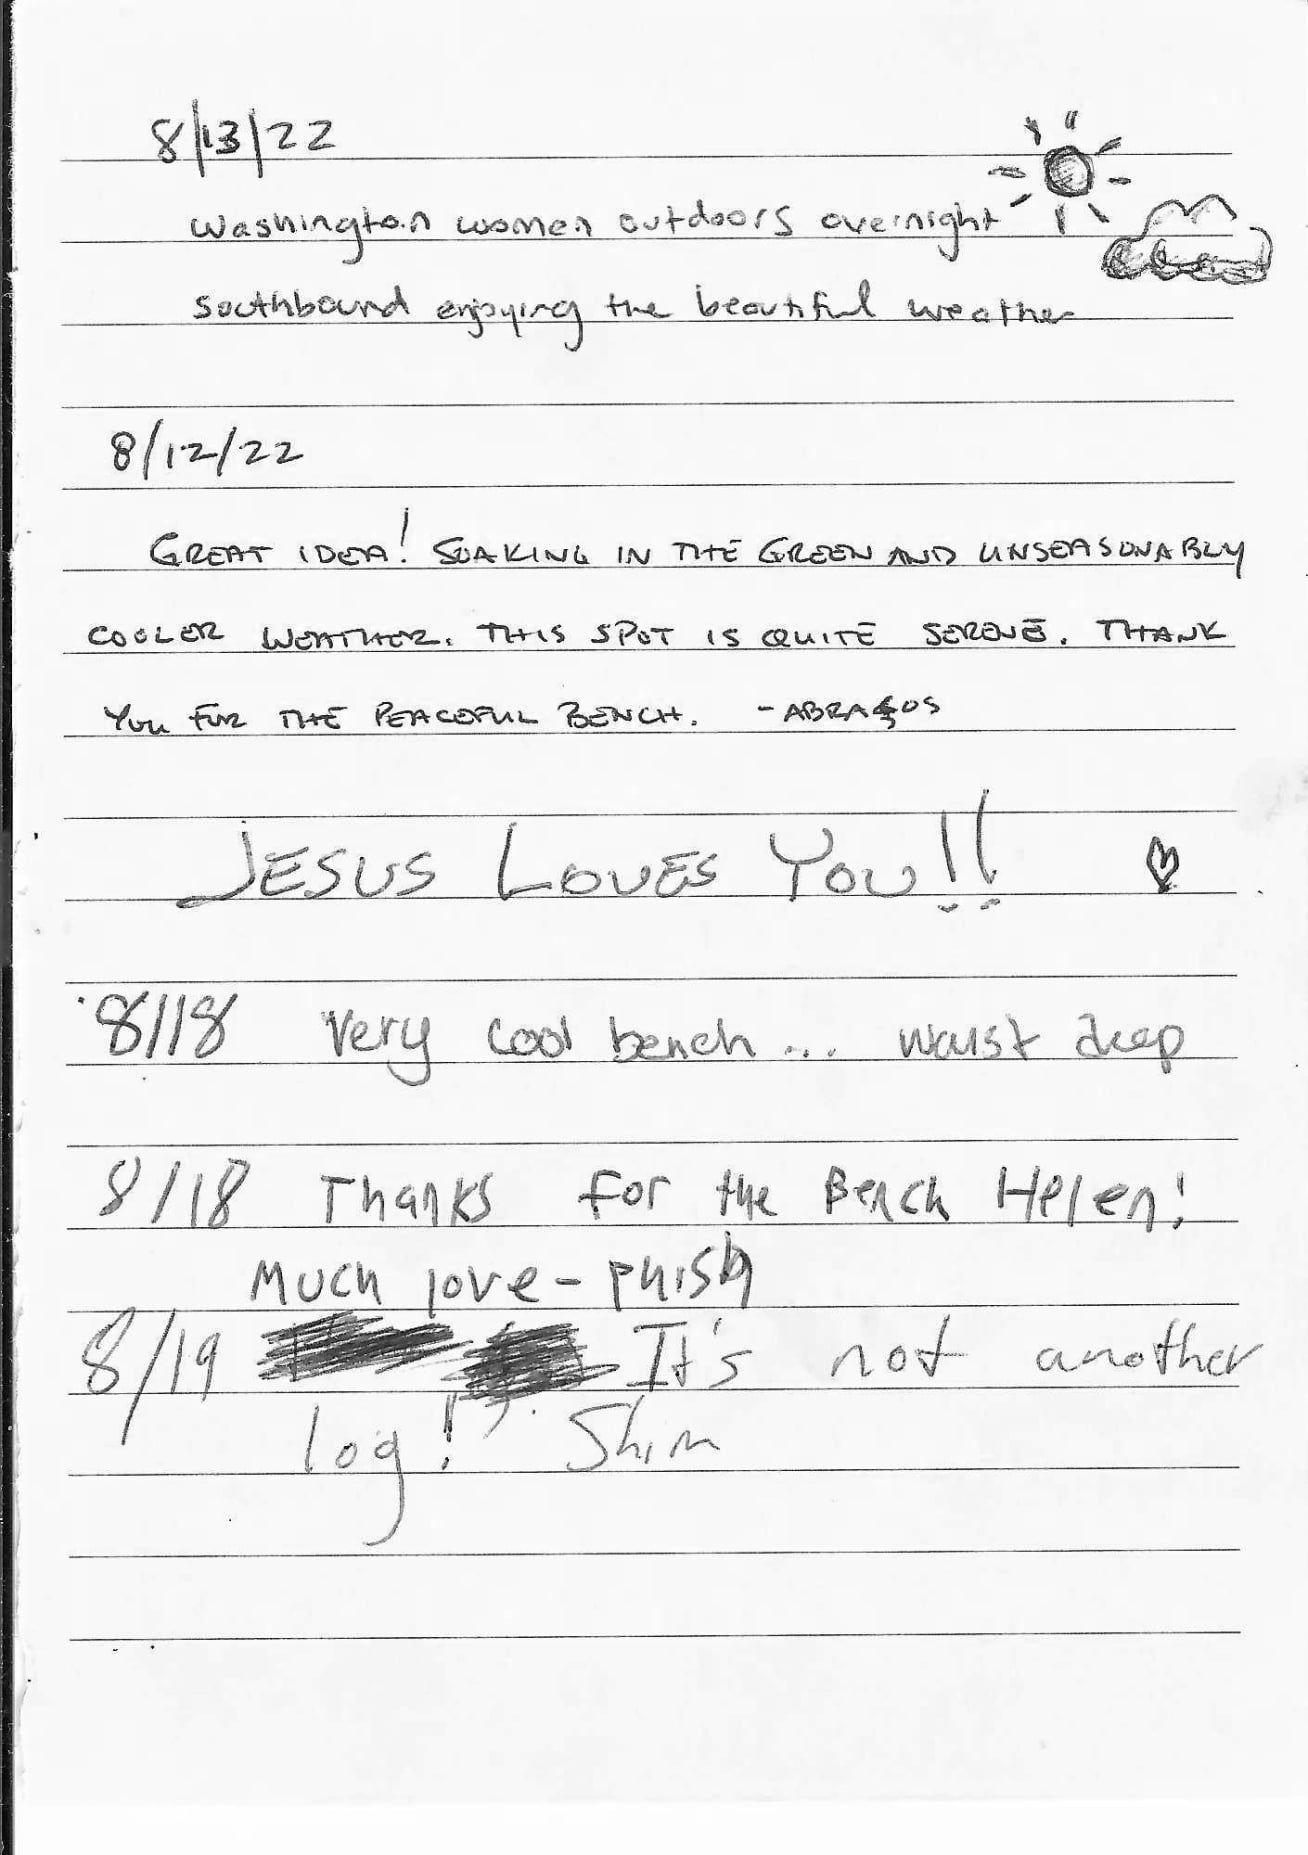 8/13/22
Washington women outdoors overnight
southbound enjoying the beautiful weather
8/12/22
GREAT IDEA! SOAKING IN THE GREEN AND UNSEASONABLY
COOLER WEATHER. THIS SPOT IS QUITE SERENE. THANK
YOU FOR THE PEACEFUL BENCH. - ABRAÇOS
JESUS LOVES YOU!!
8/18 Very cool bench... waist deep
8/18 Thanks for the Bench Helen!
Much love - phish
8/19 It's not another
log! Shim